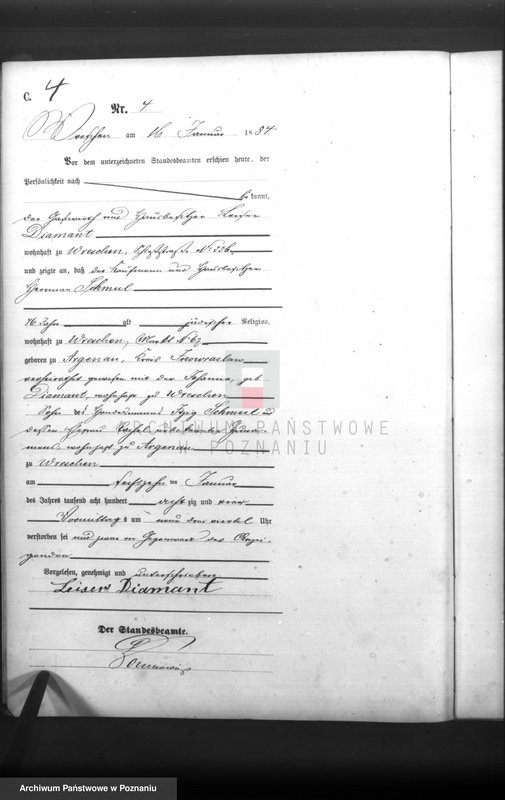 4
C.
Nr. 4
Wreschen am 16 Januar 1884
Vor dem unterzeichneten Standesbeamten erschien heute, der
Persönlichkeit nach
bekannt,
der Gastwirth und Hausbesitzer Leiser
Diamant
wohnhaft zu Wreschen, Schloßstraße N 236
und zeigte an, daß der Kaufmann und Hausbesitzer
Herrman Schmul
46 Jahr alt jüdischer Religion,
wohnhaft zu Wreschen, Markt N 62
geboren zu Argenau, Kreis Inowraclaw
verheirathet gewesen mit der Johanna, geb.
Diamant, wohnhaft zu Wreschen
Sohn des Handelsmanns Itzig Schmul und
dessen Ehefrau unbekannten
wohnhaft zu Argenau
zu Wreschen
am sechszehnten Januar
des Jahres tausend acht hundert achtzig und vier
Vormittags um neun drei viertel Uhr
verstorben sei und zwar in Gegenwart des Anzei-
genden
Vorgelesen, genehmigt und unterschrieben
Leiser Diamant
Der Standesbeamte.
ARCHIWUM PAŃSTWOWE
W POZNANIU
Archiwum Państwowe w Poznaniu